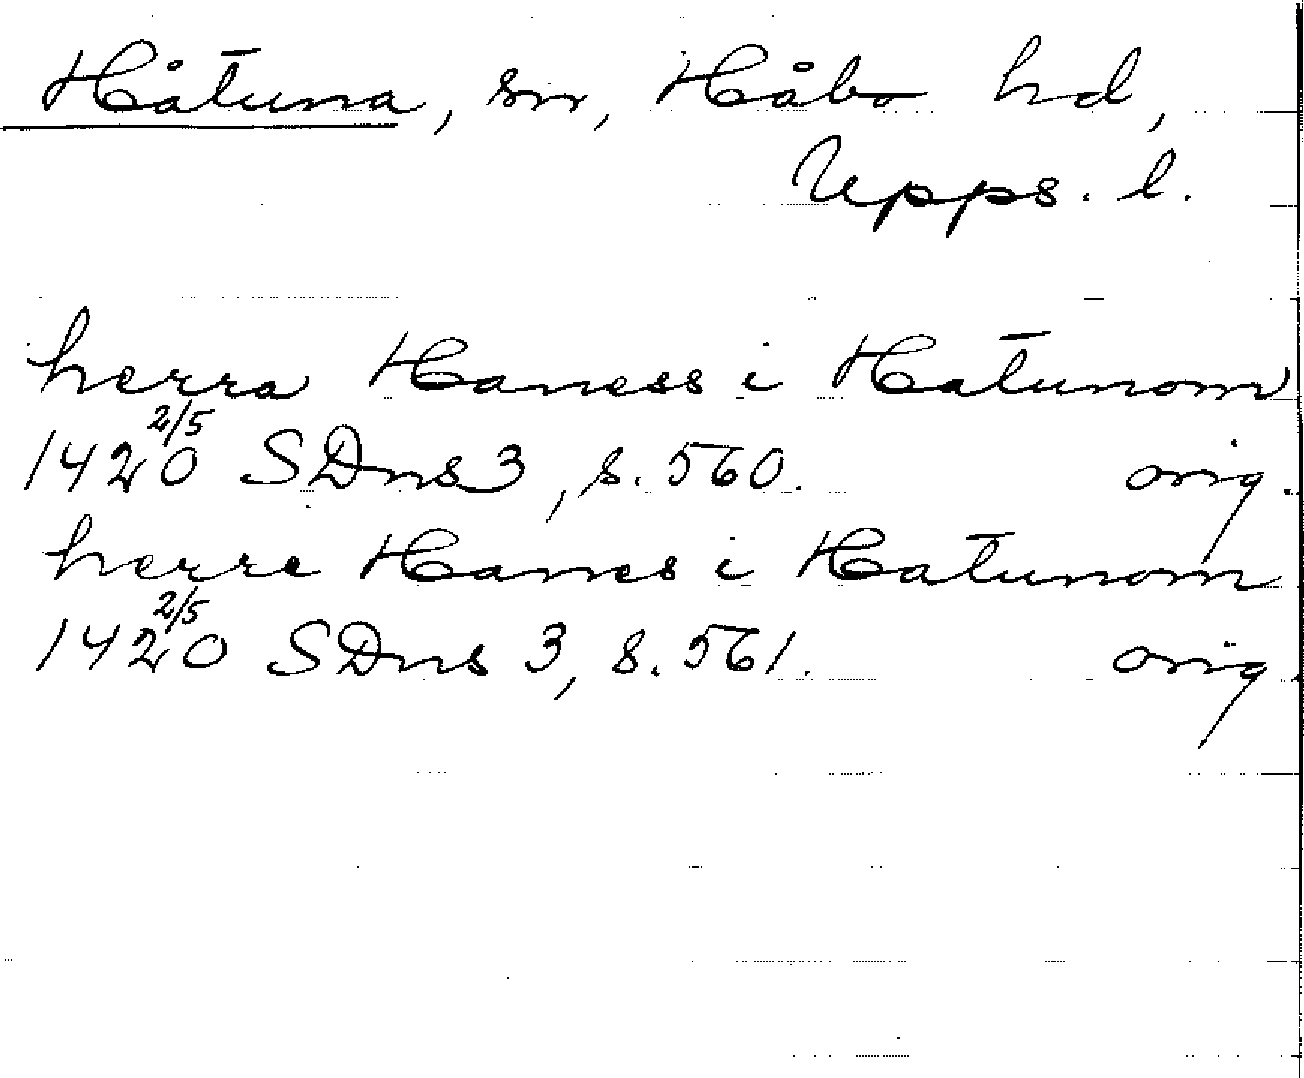 Håtuna, sn, Håbo hd,
Upps. l.
herra Haness i Hatunom
1420 2/5 SDns 3, s. 560. orig.
herre Hanes i Hatunom
1420 2/5 SDns 3, s. 561. orig.